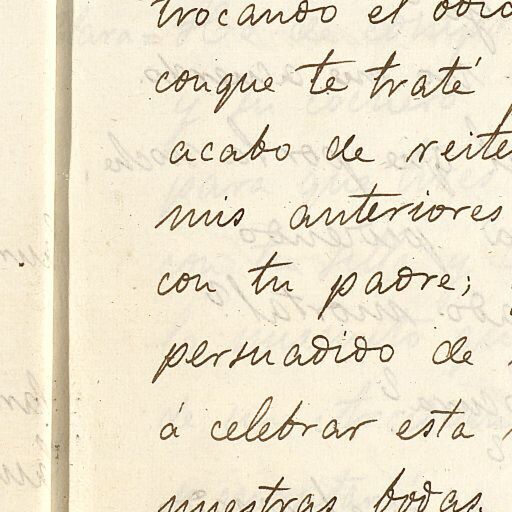 trocando el odio
conque te traté
acabo de reite
mis anteriores
con tu padre;
persuadido de
á celebrar esta
nuestras bodas.